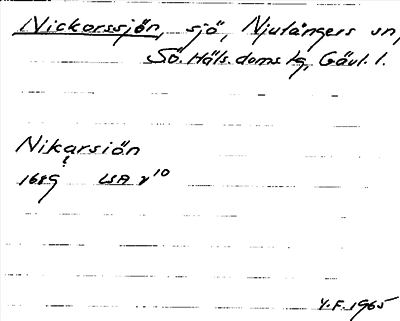 Nickorssjön, sjö, Njutångers sn,
Sö. Häls. doms lg, Gävl. l.
Nikarsiön
1689 LSA v 10
Y.F. 1965